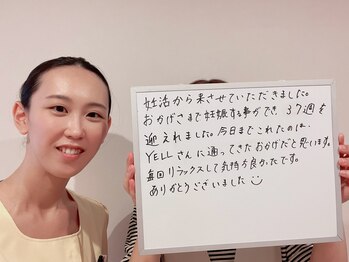 妊活から来させていただきました。
おかげさまで妊娠する事ができ、37週を
迎えれました。今日までこれたのは、
YELLさんに通ってきたおかげだと思います。
毎回リラックスして気持が良かったです。
ありがとうございました